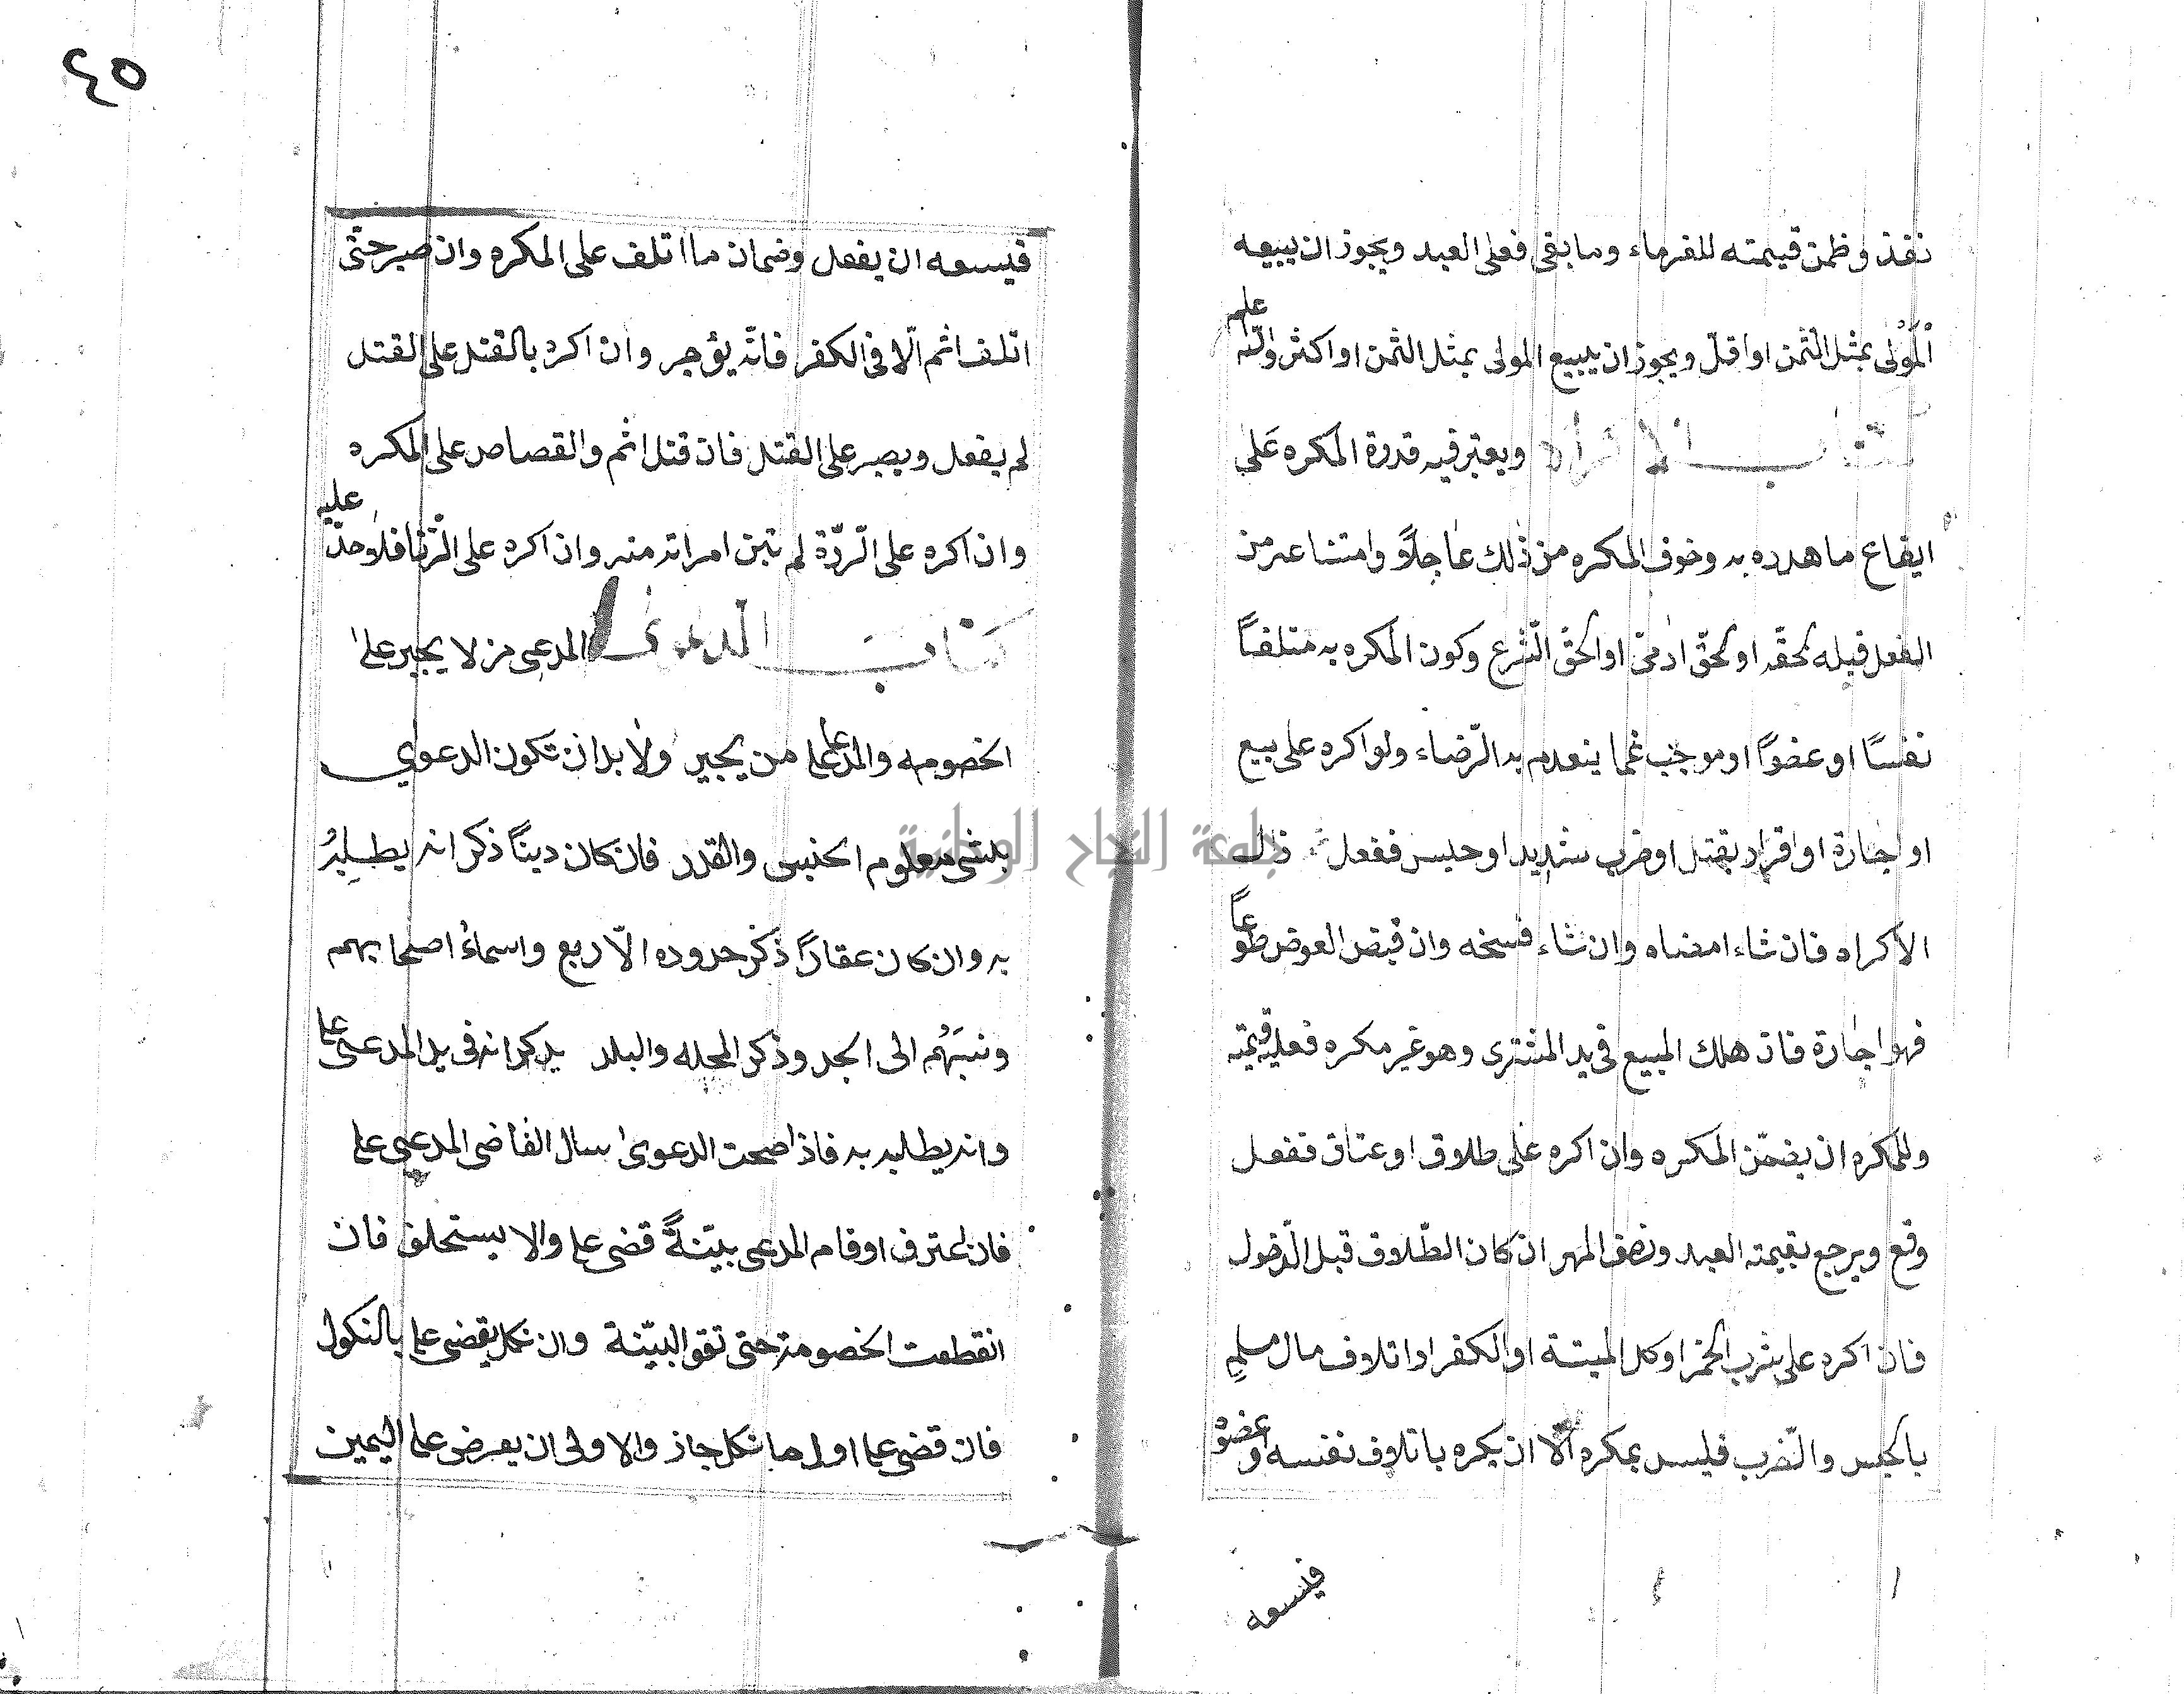 نفذ وظمن قيمته للغرماء وما بقى فعلى العبد ويجوز ان يبيعه
المولى بمثل الثمن او اقل ويجوز ان يبيع المولى بمثل الثمن او اكثر والله اعلم
كتاب الاكراه ويعتبر فيه قدرة المكره على
ايقاع ما هدده به وخوف المكره من ذلك عاجلاً وامتناعه من
الفعل قبله لحقه او لحق ادمى او لحق الشرع وكون المكره به متلفاً
نفساً او عضواً او موجب غما ينعدم به الرضاء ولو اكره على بيع
او اجارة او اقرار بقتل او ضرب شديد او حبس ففعل ذلك
الاكراه فان شاء امضاه وان شاء فسخه وان قبض العوض طوعاً
فهو اجازة فان هلك المبيع فى يد المشترى وهو غير مكره فعليه قيمته
وللمكره ان يضمن المكره وان اكره على طلاق او عتاق ففعل
وقع ويرجع بقيمته العبد ونصف المهر ان كان الطلاق قبل الدخول
فان اكره على شرب الخمر او كل الميتة او الكفر او اتلاف مال مسلم
بالحبس والضرب فليس بمكره الا ان يكره باتلاف نفسه او عضو
فيسعه
٤٥
فيسعه ان يفعل وضمان ما اتلف على المكره وان صبر حتى
اتلف اثم الا فى الكفر فانه يؤجر وان اكره بالقتل على القتل
لم يفعل ويصبر على القتل فان قتل اثم والقصاص على المكره
وان اكره على الردة لم تبن امراته منه وان اكره على الزنا فلا حد عليه
كتاب الدعوى المدعى من لا يجبر على
الخصومه والمدعى على من يجبر ولا بد ان تكون الدعوى
بشى معلوم الجنس والقدر فان كان ديناً ذكر انه يطلبه
به وان كان عقاراً ذكر حدوده الاربع واسماء اصحابهم
ونسبهم الى الجد وذكر المحله والبلد يذكر انه فى يد المدعى عليه
وانه يطلبه به فاذا صحت الدعوى سال القاضى المدعى عليه
فان اعترف او قام المدعى بينة قضى عليه والا يستحلف فان
انقطعت الخصومة حتى تقو البينة وان نكل يقضى عليه بالنكول
فان قضى عليه اول ما نكل جاز والاولى ان يعرض عليه اليمين
جامعة النجاح الوطنية